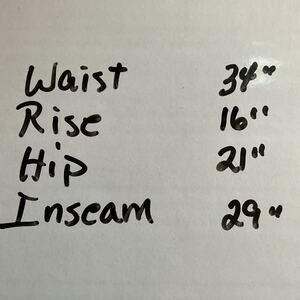 Waist 34"
Rise 16"
Hip 21"
Inseam 29"